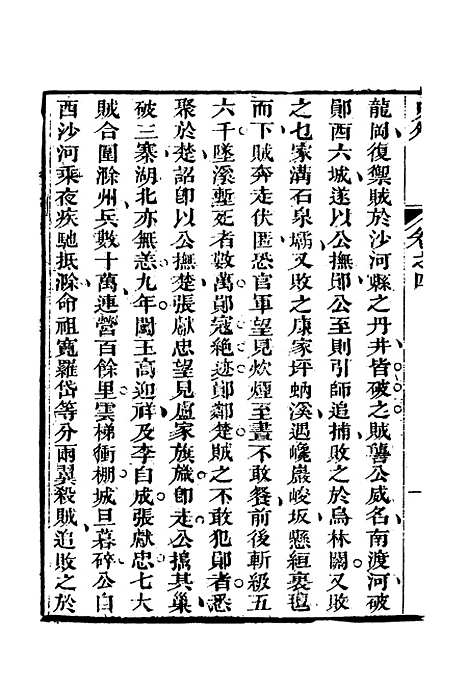 龍岡復禦賊於沙河縣之丹井皆破之賊讋公威名南渡河破
鄖西六城遂以公撫鄖公至則引師追捕敗之於烏林關又敗
之乜家溝石泉壩又敗之康家坪蚋溪遇巉巖峻坂懸縆裹氊
而下賊奔走伏匿恐官軍望見炊煙至晝不敢餐前後斬級五
六千墜溪塹死者數萬鄖寇絶迹鄖鄰楚賊之不敢犯鄖者悉
聚於楚詔卽以公撫楚張獻忠望見盧家旗幟卽走公搗其巢
破三寨湖北亦無恙九年闖王高迎祥及李自成張獻忠七大
賊合圍滁州兵數十萬連營百餘里雲梯衝棚城旦暮碎公自
西沙河乘夜疾馳抵滁命祖寬羅岱等分兩翼殺賊追敗之於
卷之四
一